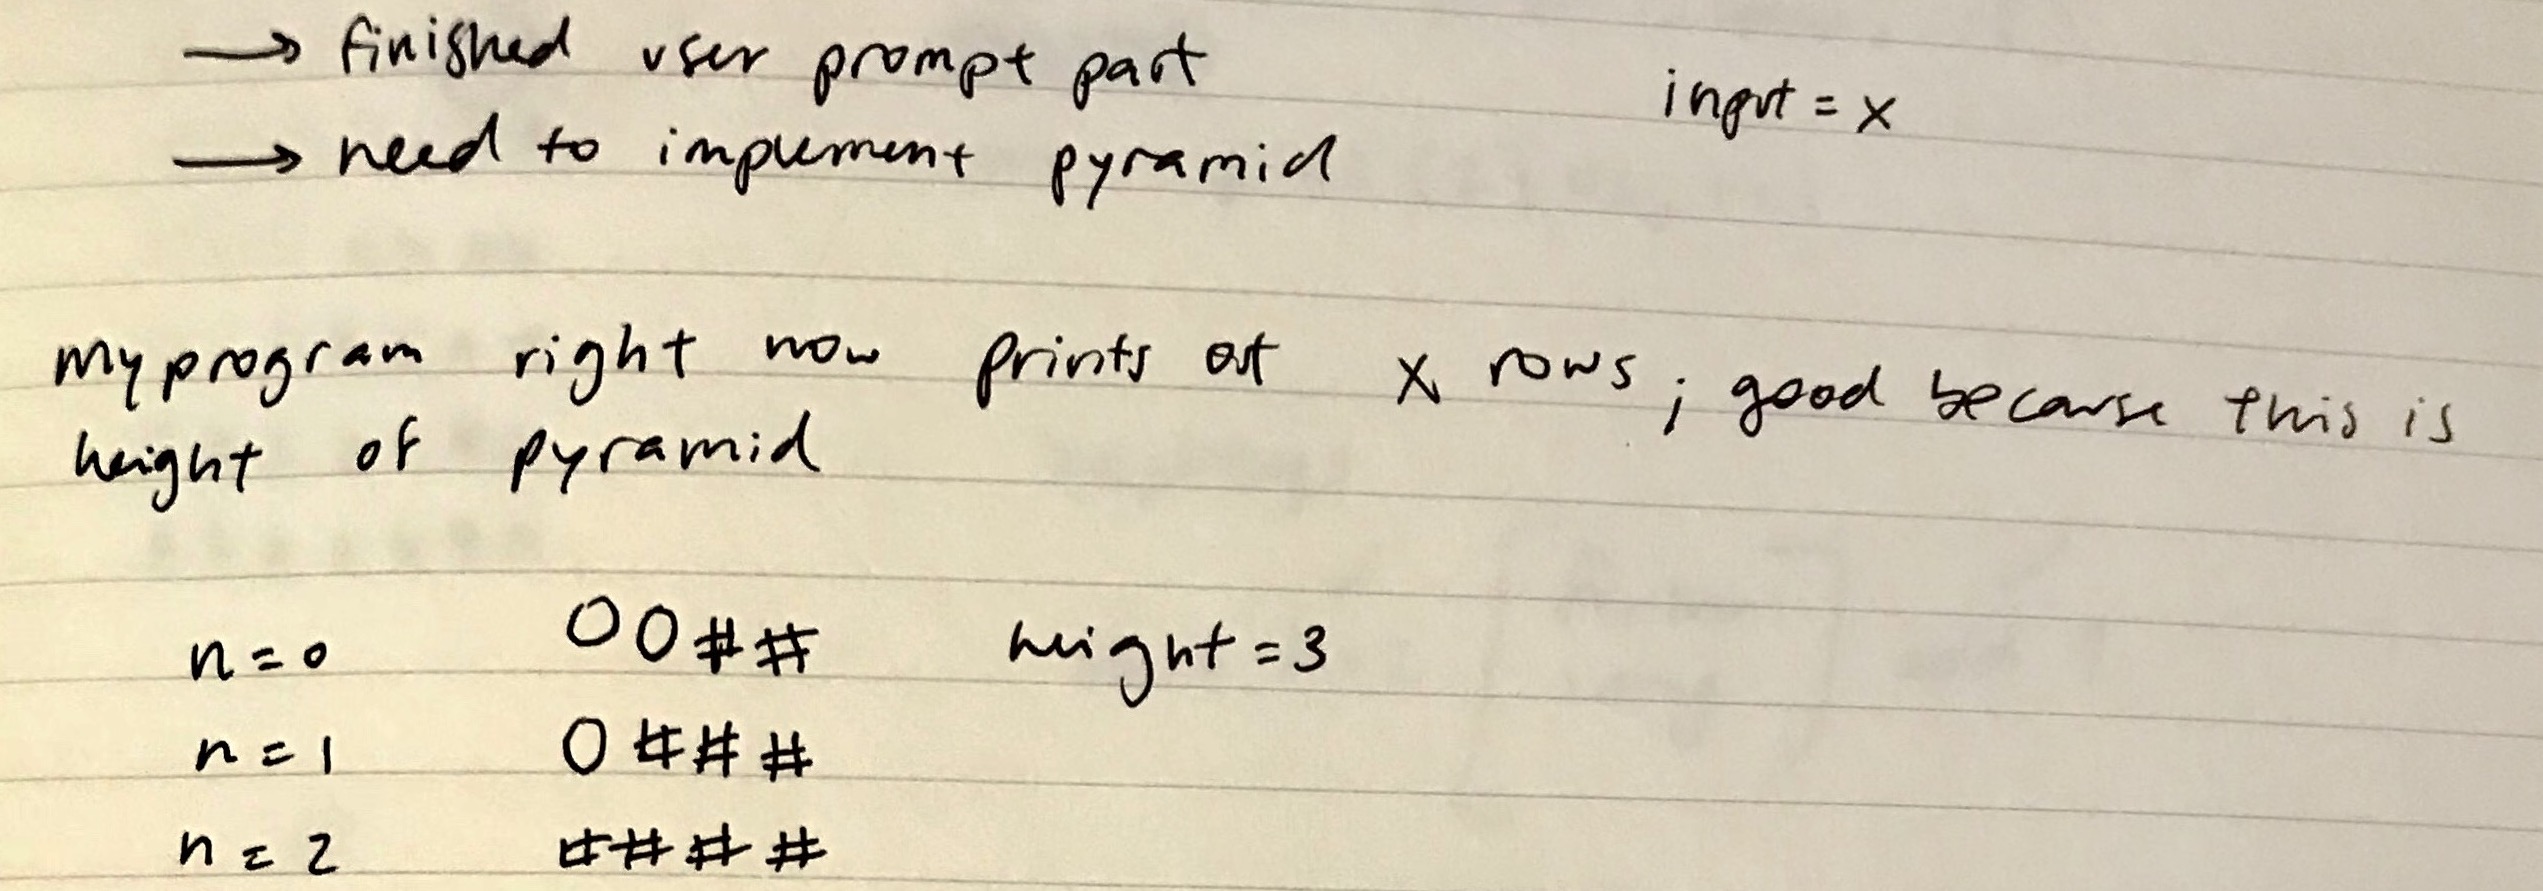 → finished user prompt part input = x
→ need to implement pyramid
My program right now prints out x rows; good because this is
height of pyramid
n = 0 00## height = 3
n = 1 0###
n = 2 ####